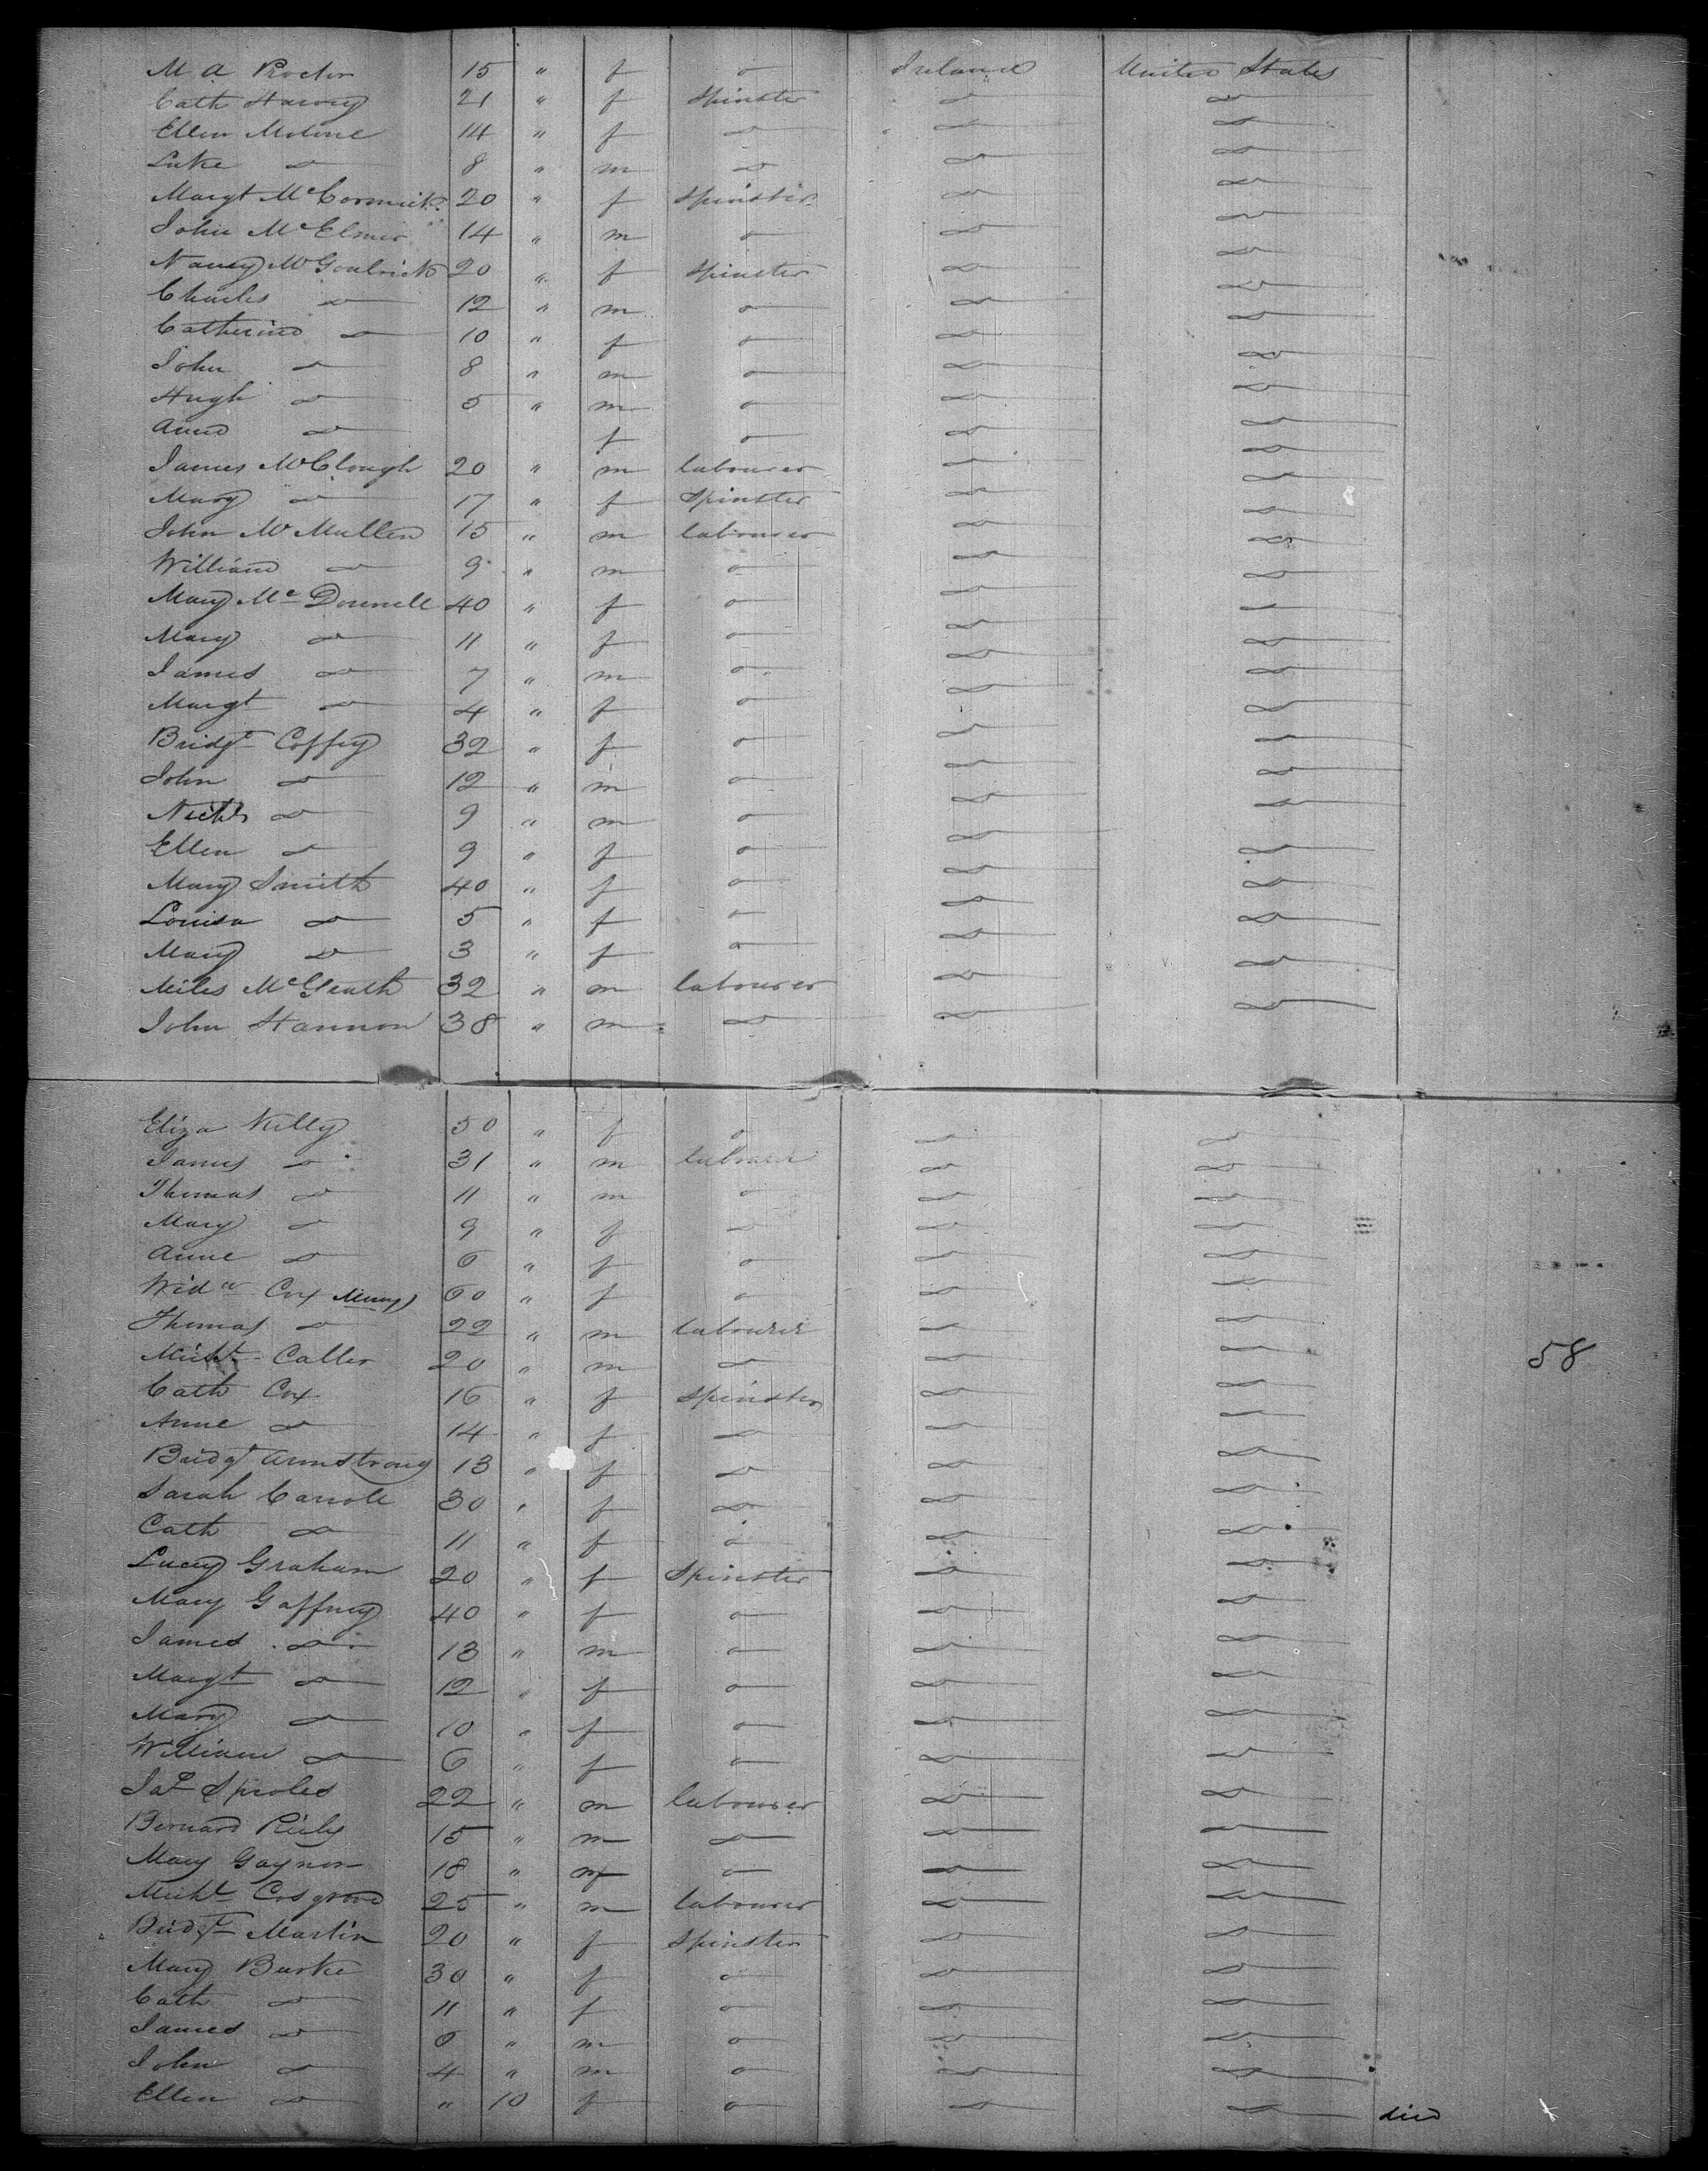 M A Proctor 15 " f o Ireland United States
Cath Harvey 21 " f Spinster do do
Ellen Malone 14 " f do do do
Luke do 8 " m do do do
Margt McCormick 20 " f Spinster do do
John McElmer 14 " m o do do
Nancy McGoulrick 20 " f Spinster do do
Charles do 12 " m o do do
Catherine do 10 " f o do do
John do 8 " m o do do
Hugh do 5 " m o do do
Anne do f o do do
James McClough 20 " m labourer do do
Mary do 17 " f Spinster do do
John McMullen 15 " m labourer do do
William do 9 " m o do do
Mary McDonnell 40 " f o do do
Mary do 11 " f o do do
James do 7 " m o do do
Margt do 4 " f o do do
Bridgt Coffey 32 " f o do do
John do 12 " m o do do
Nichs do 9 " m o do do
Ellen do 9 " f o do do
Mary Smith 40 " f o do do
Louisa do 5 " f o do do
Mary do 3 " f o do do
Miles McGrath 32 " m labourer do do
John Hannon 38 " m do do do
Eliza Kelly 50 " f o do do
James do 31 " m labourer do do
Thomas do 11 " m o do do
Mary do 9 " f do do do
Anne do 6 " f o do do
Widw Cox Mary 60 " f o do do
Thomas do 22 " m labourer do do
Michl Caller 20 " m do do do 58
Cath Cox 16 " f Spinster do do
Anne do 14 " f do do do
Bridgt Armstrong 13 " f do do do
Sarah Carrole 30 " f do do do
Cath do 11 " f o do do
Lucey Graham 20 " f Spinster do do
Mary Gaffney 40 " f o do do
James do 13 " m o do do
Margt do 12 " f o do do
Mary do 10 " f o do do
William do 6 " f o do do
Jas Sproles 22 " m labourer do do
Bernard Riely 15 " m do do do
Mary Gaynor 18 " f o do do
Michl Cosgrove 25 " m labourer do do
Bridgt Martin 20 " f Spinster do do
Mary Burke 30 " f o do do
Cath do 11 " f o do do
James do 6 " m o do do
John do 4 " m o do do
Ellen do " 10 f o do do died